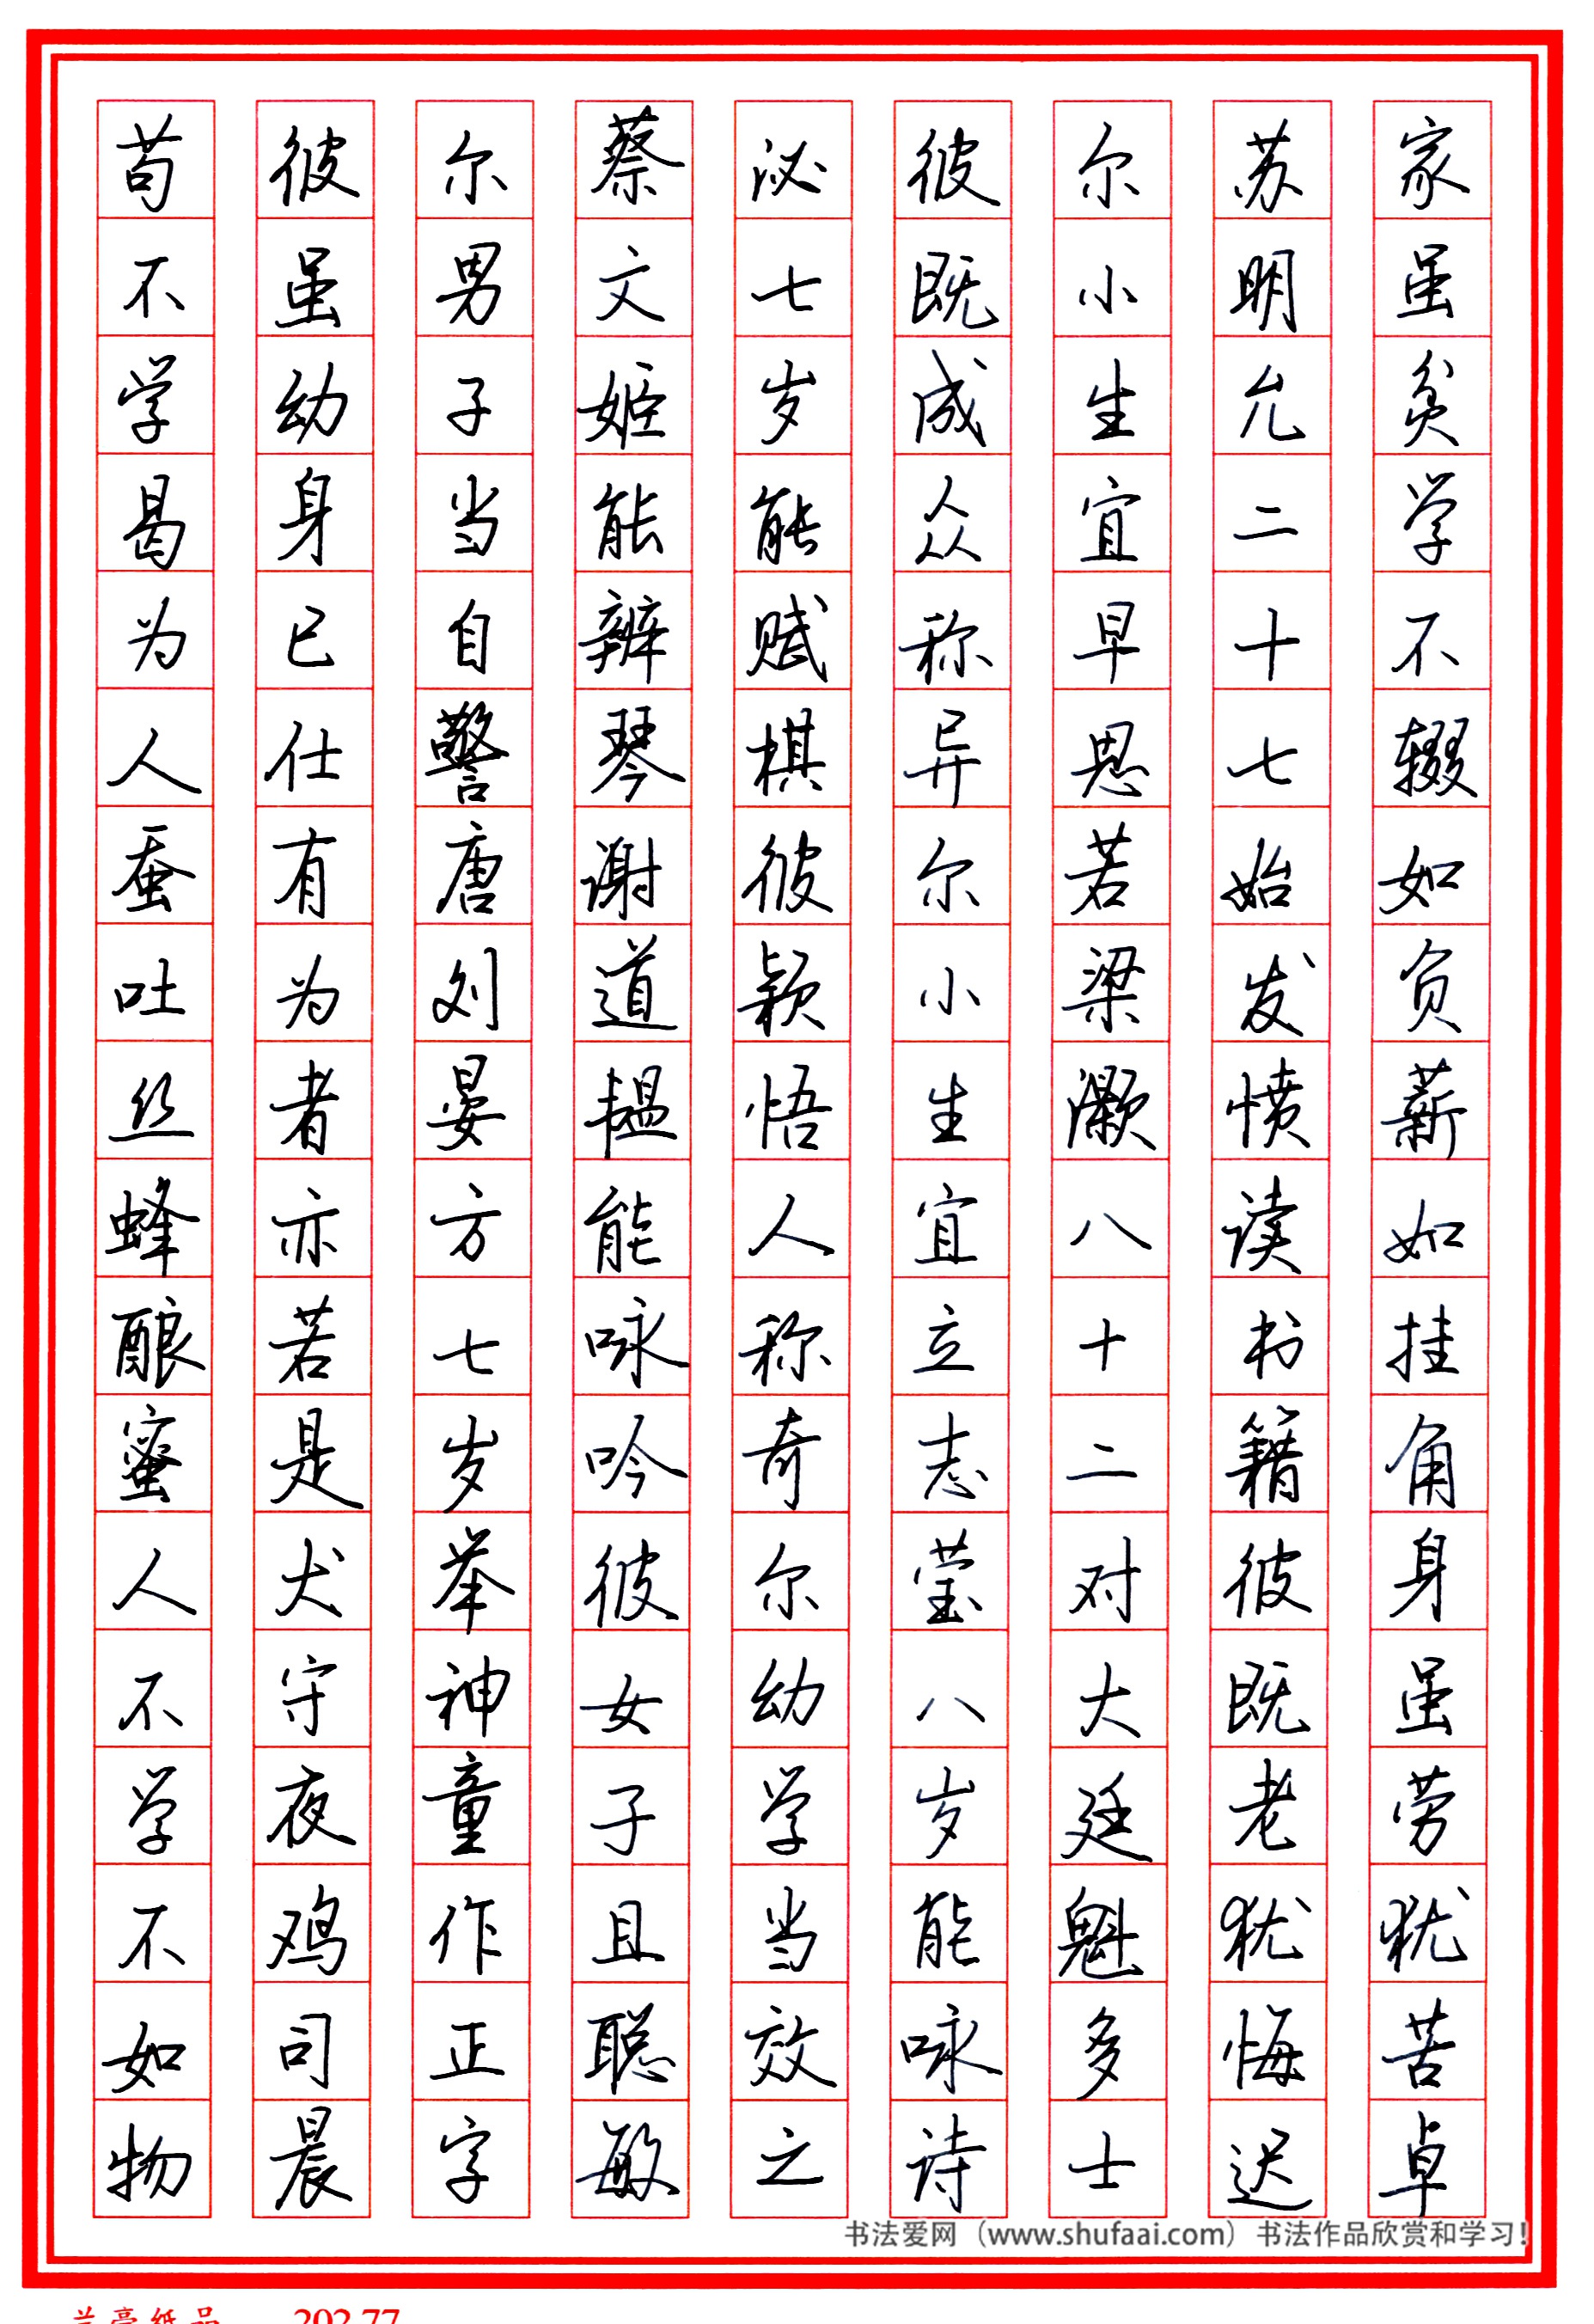 家虽贫学不辍如负薪如挂角身虽劳犹苦卓
苏明允二十七始发愤读书籍彼既老犹悔迟
尔小生宜早思若梁灏八十二对大廷魁多士
彼既成众称异尔小生宜立志莹八岁能咏诗
泌七岁能赋棋彼颖悟人称奇尔幼学当效之
蔡文姬能辨琴谢道韫能咏吟彼女子且聪敏
尔男子当自警唐刘晏方七岁举神童作正字
彼虽幼身已仕有为者亦若是犬守夜鸡司晨
苟不学曷为人蚕吐丝蜂酿蜜人不学不如物
书法爱网（www.shufaai.com）书法作品欣赏和学习！
兰亭纸品 202.77